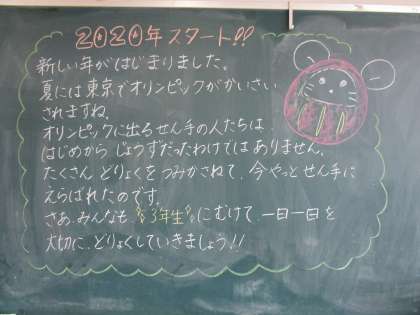 2020年スタート!!
新しい年がはじまりました。
夏には東京でオリンピックがかいさい
されますね。
オリンピックに出るせん手の人たちは
はじめから じょうずだったわけではありません。
たくさん どりょくをつみかさねて、今やっとせん手に
えらばれたのです。
さあ、みんなも 3年生 にむけて 一日一日を
大切に、どりょくしていきましょう!!